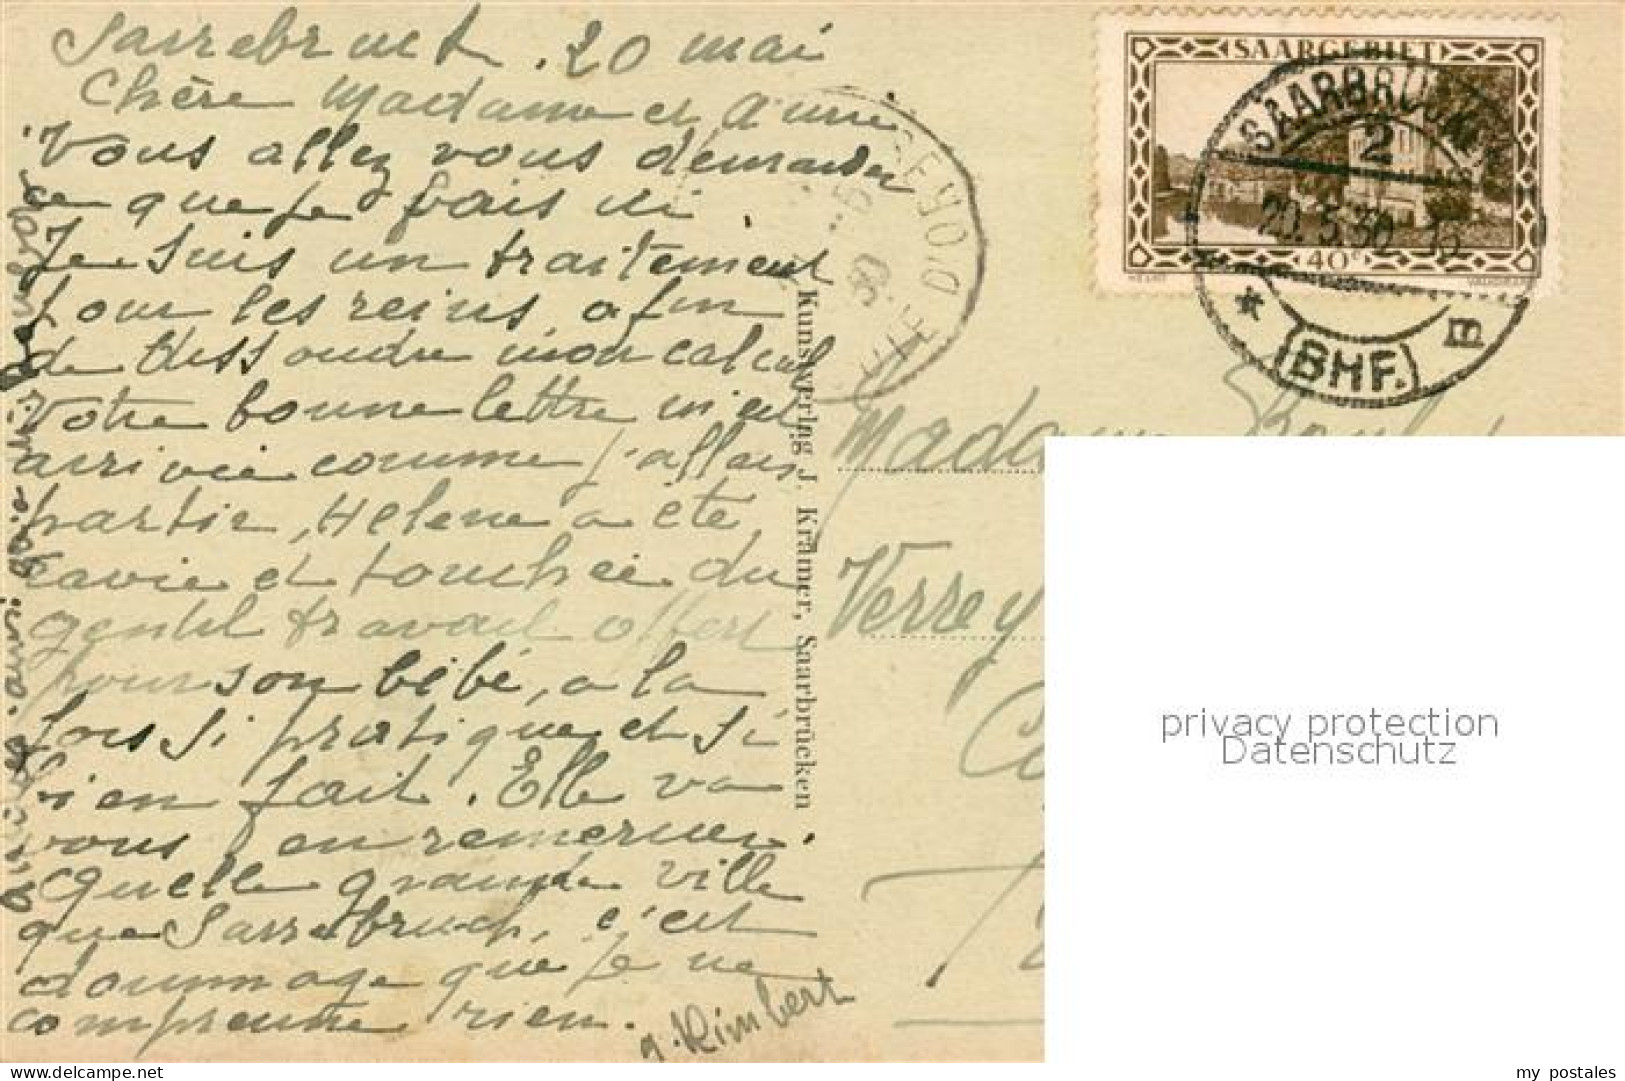 Sarrebruck. 20 mai
Chère Madame et amie
Vous allez vous demander
ce que je fais ici
Je suis un traitement
pour les reins, afin
de dissoudre mon calcul
Votre bonne lettre m'est
arrivée comme j'allais
partir, Hélène a été
ravie et touchée du
gentil travail offert
pour son bébé, a la
fois si pratique et si
bien fait. Elle va
vous en remercier.
Quelle grande ville
que Sarrebruck, c'est
dommage que je ne
comprenne rien.
g. Rimbert
Kunstverlag J. Krämer, Saarbrücken
SAARGEBIET
40 c
SAARBRÜCKEN
2
20.5.30
(BHF.)
E
D'OR
30
Madame
Verrey
privacy protection
Datenschutz
my postales